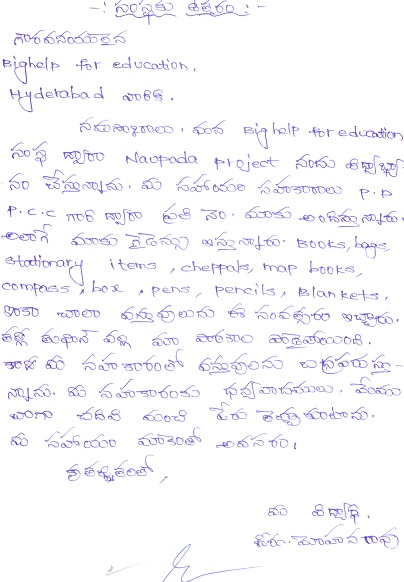 -: సంస్థకు ఉత్తరం :-
గౌరవనీయులైన
Bighelp for education.
Hyderabad వారికి.
నమస్కారాలు. మన Big help for education
సంస్థ ద్వారా Naupada project నందు విద్యాభ్యా
సం చేస్తున్నాను. మీ సహాయ సహకారాలు P.D
P.C.C గారి ద్వారా ప్రతి నెల మాకు అందిస్తున్నారు.
అలాగే మాకు గైడెన్సు ఇస్తున్నారు. Books, bags,
stationary items, cheppals, map books,
compass, box, pens, pencils, Blankets,
ఇంకా చాలా వస్తువులను ఈ సంవత్సరం ఇచ్చారు.
తిత్లీ తుఫాన్ వల్ల మా
మీ సహకారంతో వస్తువులను
న్నాను. మీ సహకారంకు ధన్యవాదములు. మేము
బాగా చదివి మంచి పేరు తెచ్చుకుంటాను.
మీ సహాయం మాకెంతో అవసరం.
కృతజ్ఞతలతో,
మీ విద్యార్థి.
మోహనరావు